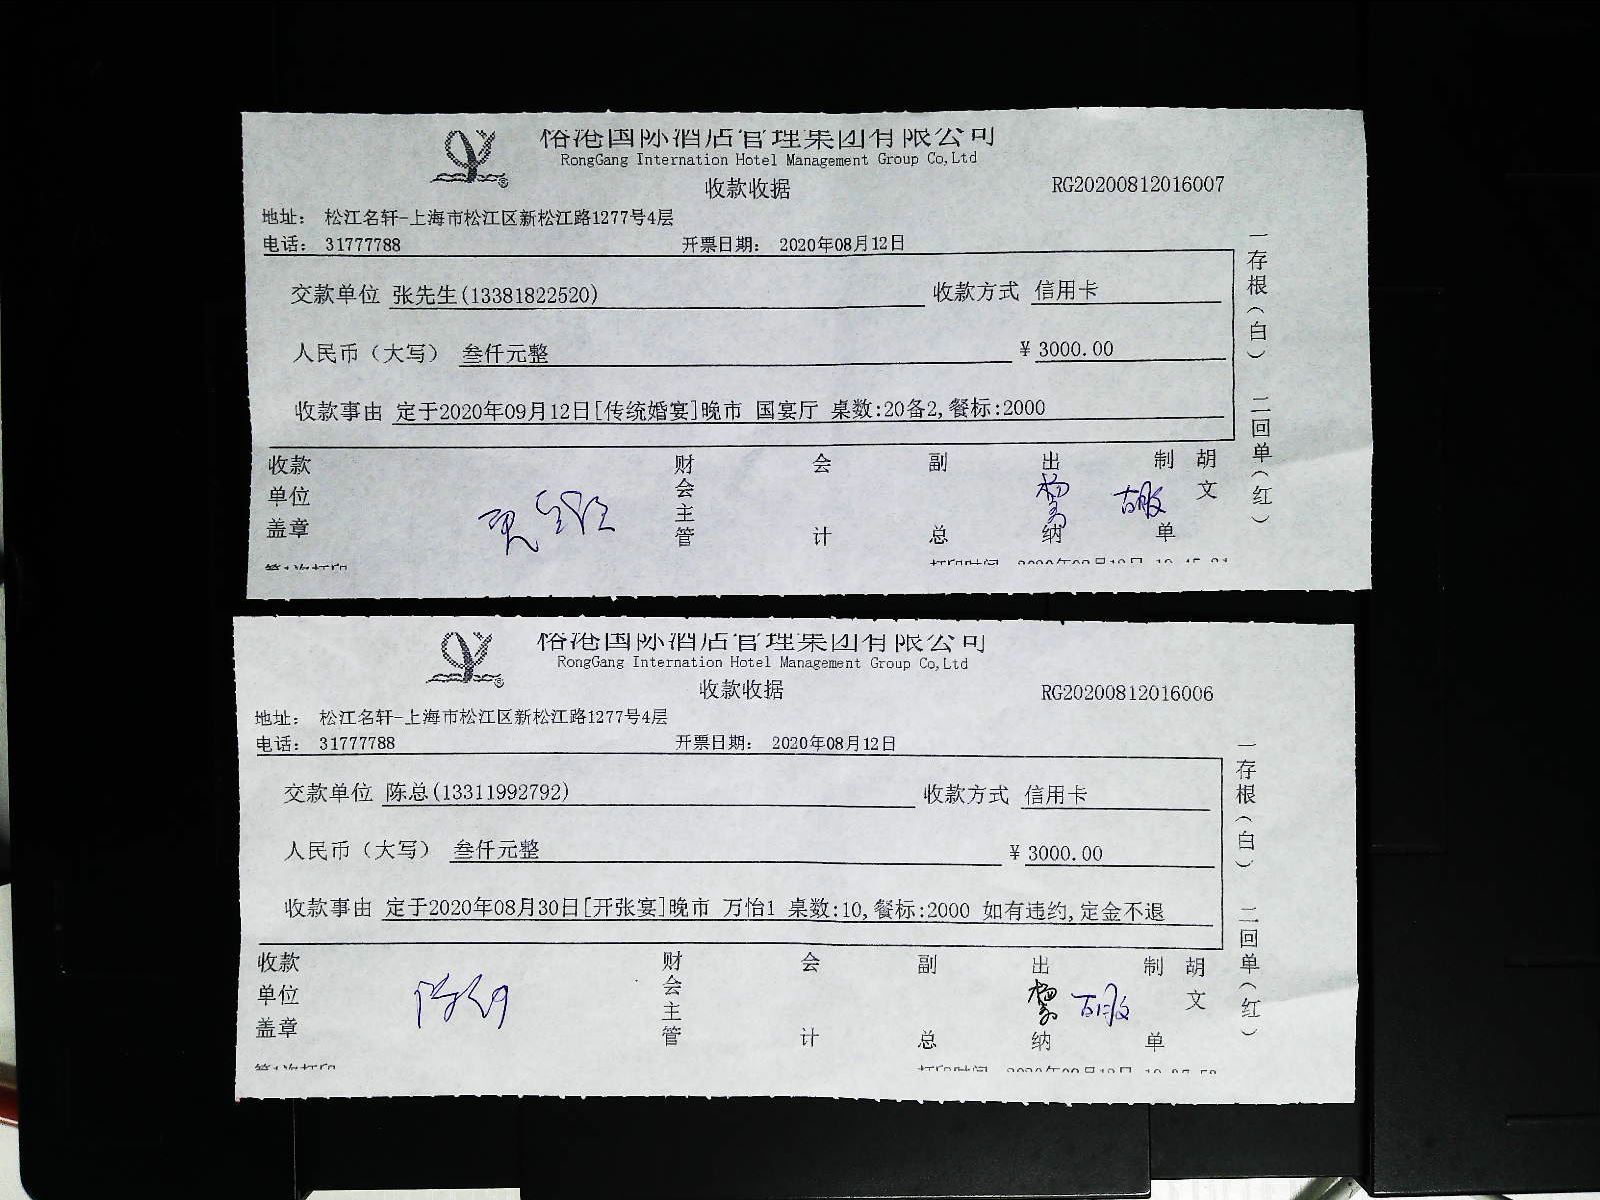 国际酒店管理集团有限公司
RongGang Internation Hotel Management Group Co,Ltd
收款收据 RG20200812016007
地址： 松江名轩-上海市松江区新松江路1277号4层
电话： 31777788 开票日期： 2020年08月12日
交款单位 张先生(13381822520) 收款方式 信用卡
人民币（大写） 叁仟元整 ¥ 3000.00
收款事由 定于2020年09月12日[传统婚宴]晚市 国宴厅 桌数:20备2,餐标:2000
收款单位盖章 财会主管 会计 副总 出纳 制单 胡文
一存根（白） 二回单（红）
第1次打印
国际酒店管理集团有限公司
RongGang Internation Hotel Management Group Co,Ltd
收款收据 RG20200812016006
地址： 松江名轩-上海市松江区新松江路1277号4层
电话： 31777788 开票日期： 2020年08月12日
交款单位 陈总(13311992792) 收款方式 信用卡
人民币（大写） 叁仟元整 ¥ 3000.00
收款事由 定于2020年08月30日[开张宴]晚市 万怡1 桌数:10,餐标:2000 如有违约,定金不退
收款单位盖章 财会主管 会计 副总 出纳 制单 胡文
一存根（白） 二回单（红）
第1次打印